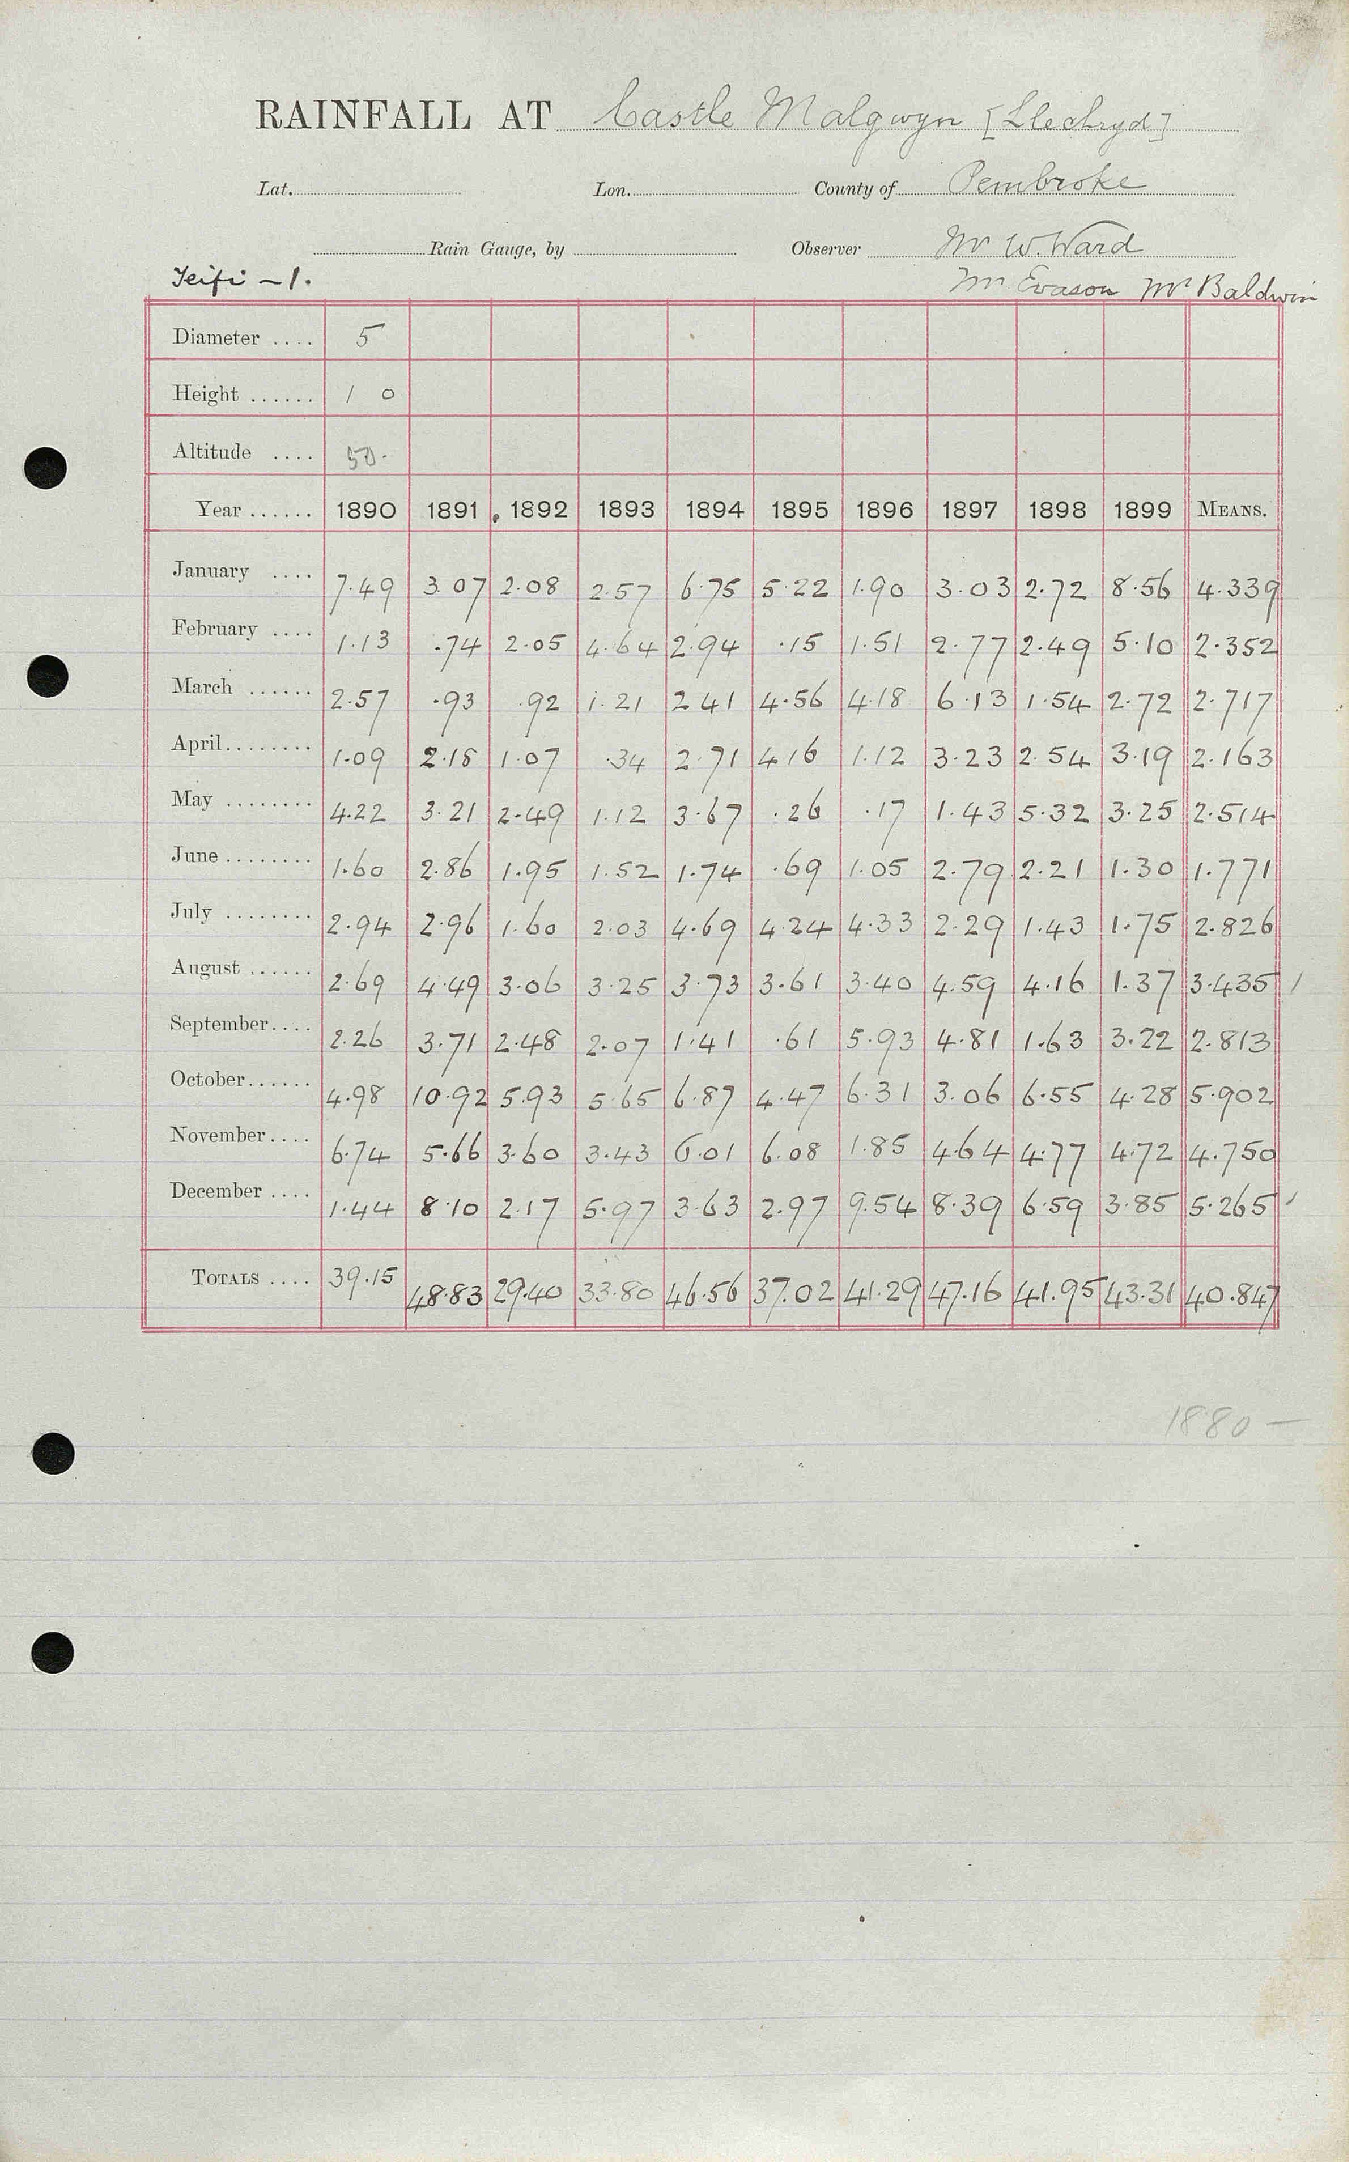 RAINFALL AT Castle Malgwyn [Llechryd]
Lat. Lon. County of Pembroke
Rain Gauge, by Observer Mr W. Ward
Teifi - 1. Mr. Evason Mr Baldwin
Diameter .... 5
Height ...... 1 0
Altitude .... 50.
Year ...... 1890 1891 1892 1893 1894 1895 1896 1897 1898 1899 MEANS.
January .... 7.49 3.07 2.08 2.57 6.75 5.22 1.90 3.03 2.72 8.56 4.339
February .... 1.13 .74 2.05 4.64 2.94 .15 1.51 2.77 2.49 5.10 2.352
March ...... 2.57 .93 .92 1.21 2.41 4.56 4.18 6.13 1.54 2.72 2.717
April........ 1.09 2.18 1.07 .34 2.71 4.16 1.12 3.23 2.54 3.19 2.163
May ........ 4.22 3.21 2.49 1.12 3.67 .26 .17 1.43 5.32 3.25 2.514
June ........ 1.60 2.86 1.95 1.52 1.74 .69 1.05 2.79 2.21 1.30 1.771
July ........ 2.94 2.96 1.60 2.03 4.69 4.24 4.33 2.29 1.43 1.75 2.826
August ...... 2.69 4.49 3.06 3.25 3.73 3.61 3.40 4.59 4.16 1.37 3.435 /
September.... 2.26 3.71 2.48 2.07 1.41 .61 5.93 4.81 1.63 3.22 2.813
October...... 4.98 10.92 5.93 5.65 6.87 4.47 6.31 3.06 6.55 4.28 5.902
November.... 6.74 5.66 3.60 3.43 6.01 6.08 1.85 4.64 4.77 4.72 4.750
December .... 1.44 8.10 2.17 5.97 3.63 2.97 9.54 8.39 6.59 3.85 5.265 /
TOTALS .... 39.15 48.83 29.40 33.80 46.56 37.02 41.29 47.16 41.95 43.31 40.847
1880 -